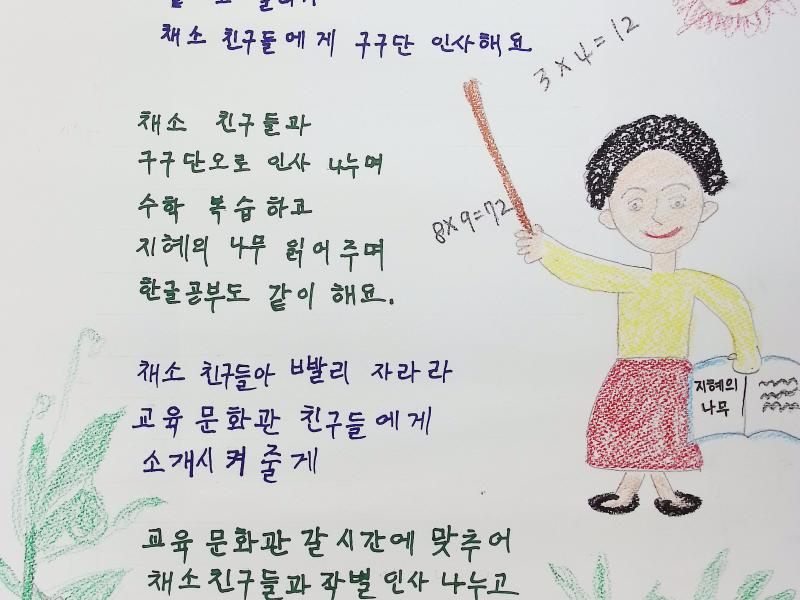 채소 친구들에게 구구단 인사해요
3×4=12
채소 친구들과
구구단으로 인사 나누며
수학 복습하고
8×9=72
지혜의 나무 읽어주며
한글공부도 같이 해요.
채소 친구들아 빨리 자라라
교육문화관 친구들에게
소개시켜줄게
지혜의
나무
교육문화관 갈 시간에 맞추어
채소친구들과 작별인사 나누고